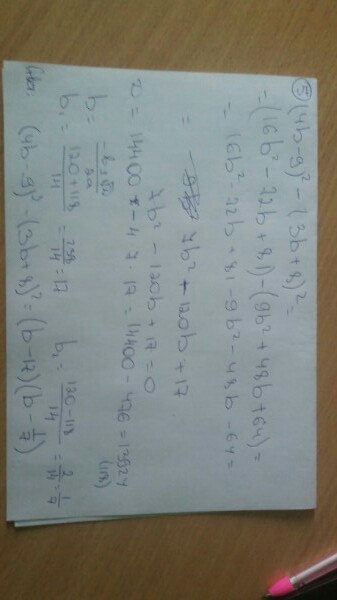 ⑤ (4b-9)² - (3b+8)² =
= (16b² - 72b + 81) - (9b² + 48b + 64) =
= 16b² - 72b + 81 - 9b² - 48b - 64 =
= 7b² + 120b + 17
7b² - 120b + 17 = 0
D = 14400 - 4 · 7 · 17 = 14400 - 476 = 13924
(118)
b = (-b ± √D) / 2a
b₁ = (120 + 118) / 14 = 238 / 14 = 17 b₂ = (120 - 118) / 14 = 2 / 14 = 1 / 7
(4b - 9)² - (3b + 8)² = (b - 17)(b - 1/7)